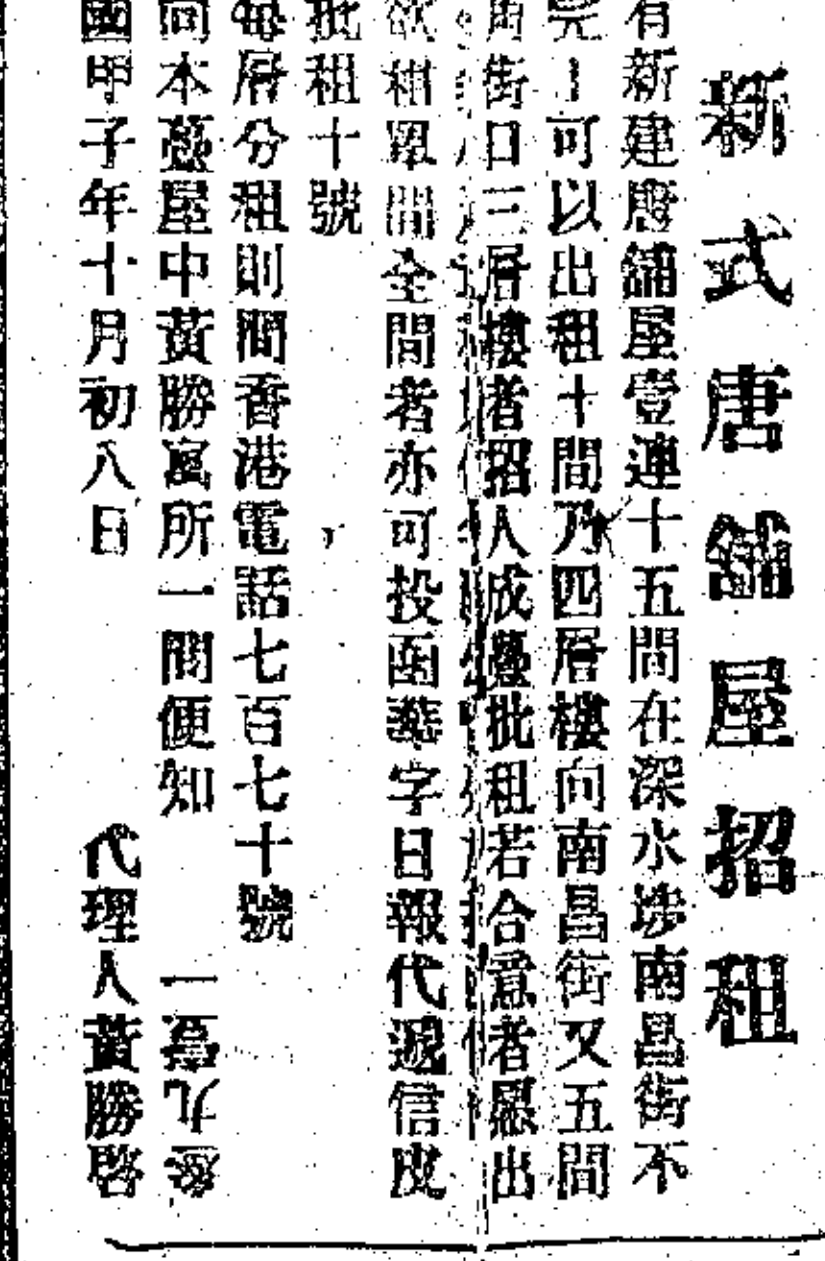 新式唐舖屋招租
有新建唐舖屋壹連十五間在深水埗南昌街不
完可以出租十間乃四層樓向南昌街又五間
角街口三層樓者招人成疊批租若合意者愿出
欲租單間全間者亦可投函華字日報代遞信皮
批租十號
每層分租則問香港電話七百七十號
向本疊屋中黃勝寓所一問便知
國甲子年十月初八日 代理人黃勝啓